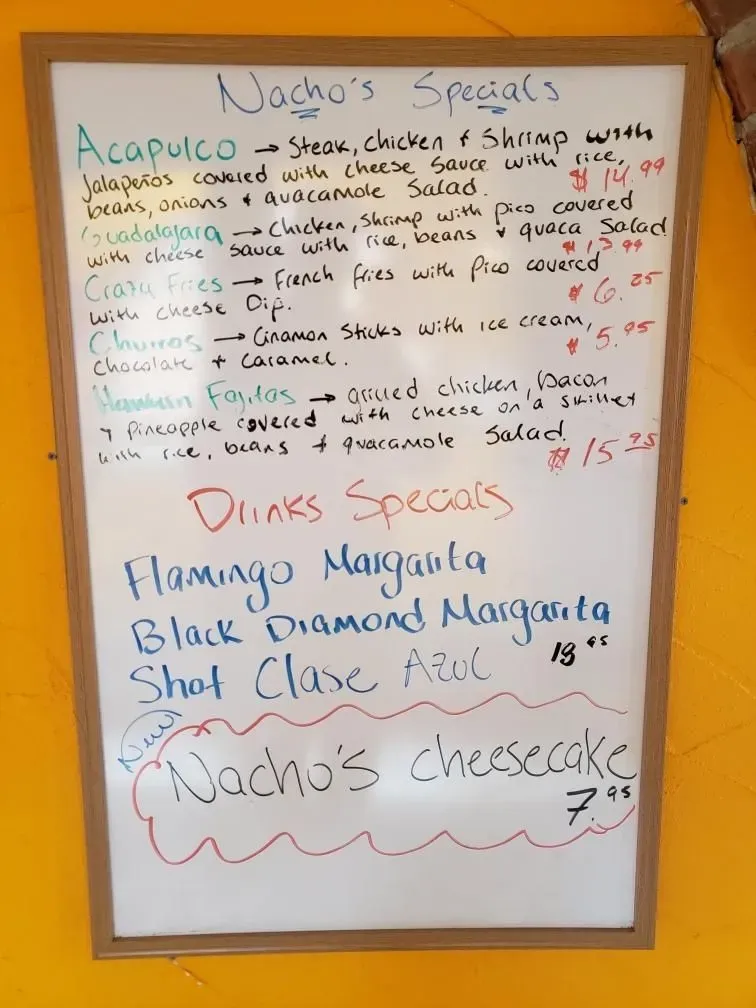 Nacho's Specials
Acapulco → Steak, chicken & Shrimp with
Jalapeños covered with cheese sauce with rice,
beans, onions & guacamole Salad. $ 14.99
Guadalajara → Chicken, Shrimp with pico covered
with cheese sauce with rice, beans & guaca Salad
$ 13.99
Crazy Fries → French fries with Pico covered
with cheese Dip. $ 6.25
Churros → Cinamon Sticks with ice cream,
chocolate & caramel. $ 5.95
Fajitas → grilled chicken, Bacon
& pineapple covered with cheese on a skillet
with rice, beans & guacamole Salad.
$ 15.95
Drinks Specials
Flamingo Margarita
Black Diamond Margarita
Shot Clase Azul
.95
New
Nacho's cheesecake
7.95